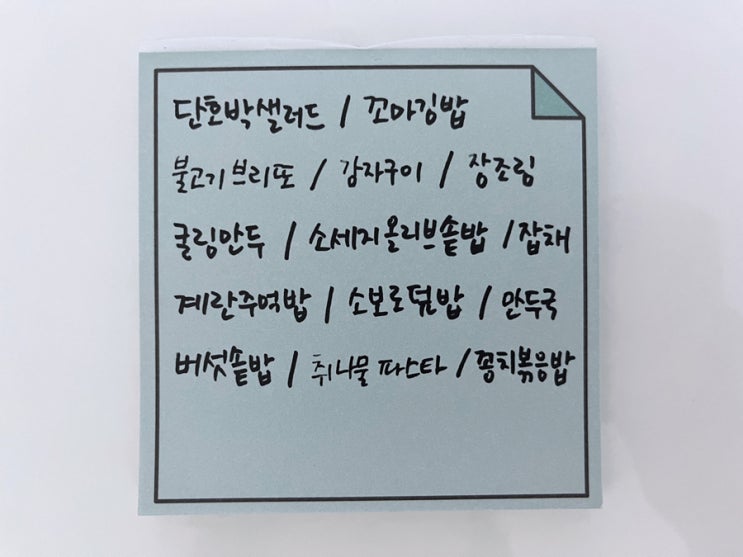 단호박샐러드 / 꼬마김밥
불고기브리또 / 감자구이 / 장조림
굴림만두 / 소세지올리브솥밥 / 잡채
계란주먹밥 / 소보로덮밥 / 만두국
버섯솥밥 / 취나물 파스타 / 꽁치볶음밥